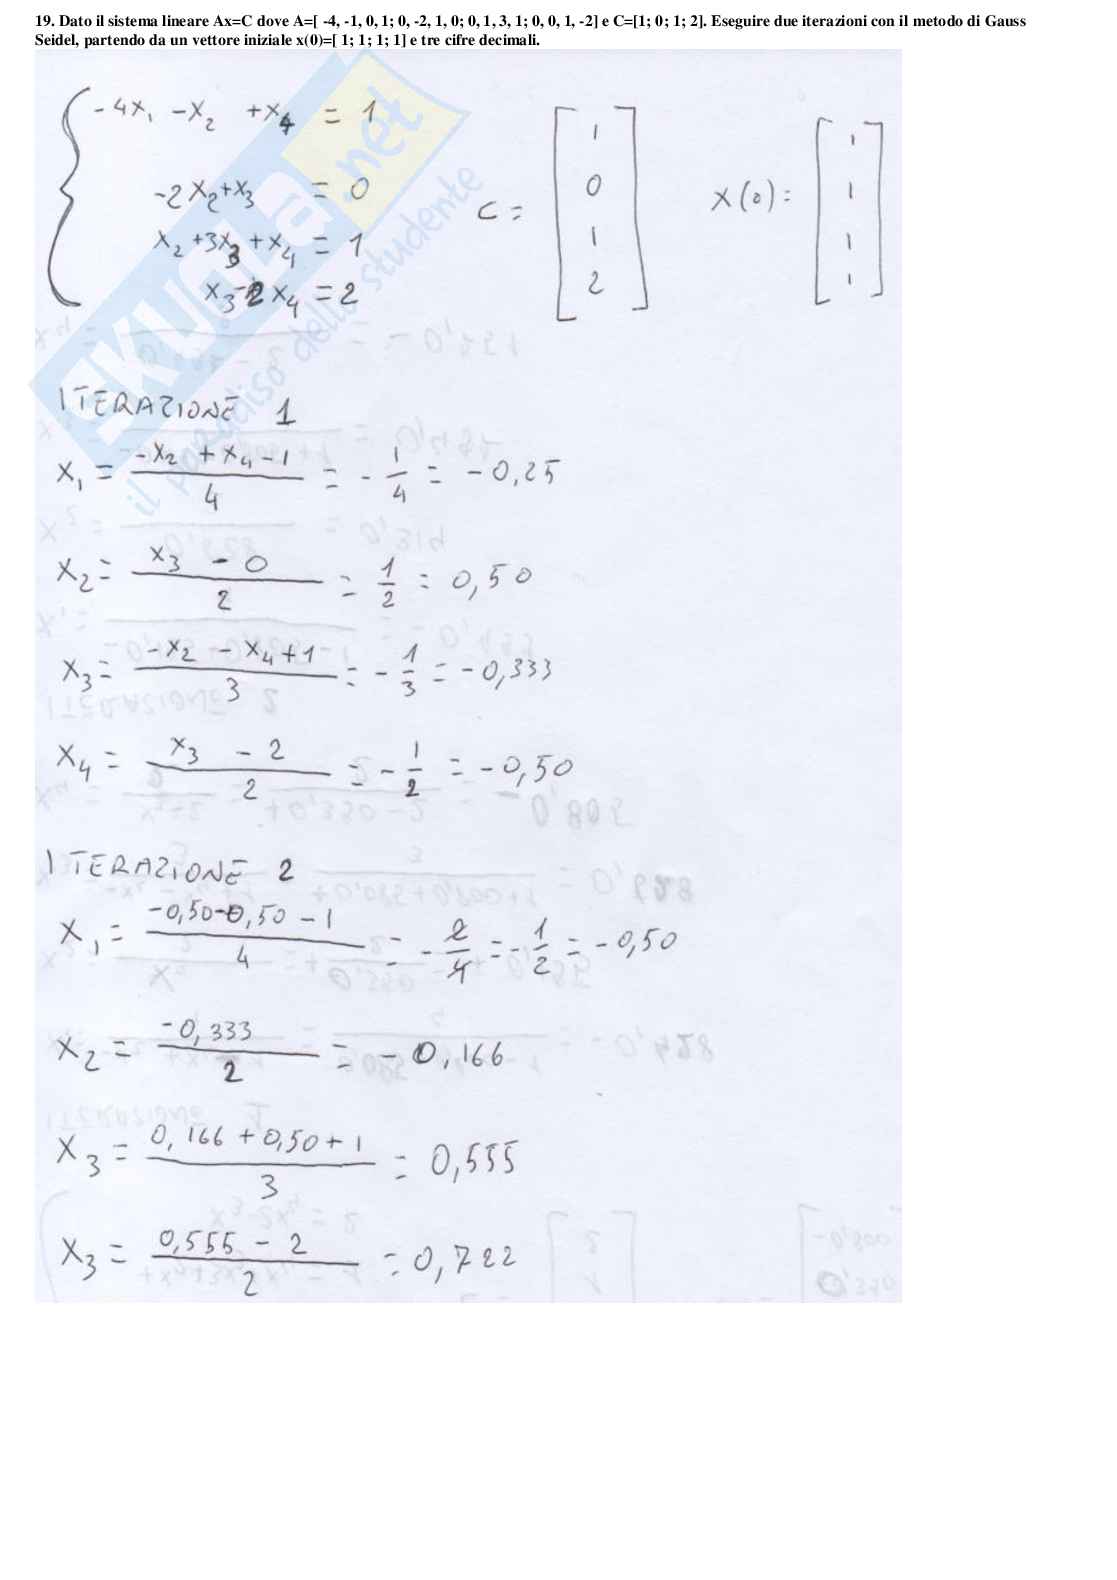 19. Dato il sistema lineare Ax=C dove A=[ -4, -1, 0, 1; 0, -2, 1, 0; 0, 1, 3, 1; 0, 0, 1, -2] e C=[1; 0; 1; 2]. Eseguire due iterazioni con il metodo di Gauss
Seidel, partendo da un vettore iniziale x(0)=[ 1; 1; 1; 1] e tre cifre decimali.
-4x₁ -x₂ +x₄ = 1
-2x₂+x₃ = 0
x₂ +3x₃ +x₄ = 1
x₃-2x₄ = 2
C = [1 0 1 2]
x(0)= [1 1 1 1]
SKUOLA.net
il paradiso dello studente
ITERAZIONE 1
x₁ = (-x₂ + x₄ -1)/4 = -1/4 = -0,25
x₂ = (x₃ - 0)/2 = 1/2 = 0,50
x₃ = (-x₂ - x₄ +1)/3 = -1/3 = -0,333
x₄ = (x₃ - 2)/2 = -1/2 = -0,50
ITERAZIONE 2
x₁ = (-0,50-0,50 - 1)/4 = -2/4 = -1/2 = -0,50
x₂ = (-0,333)/2 = -0,166
x₃ = (0,166 + 0,50 + 1)/3 = 0,555
x₃ = (0,555 - 2)/2 = 0,722